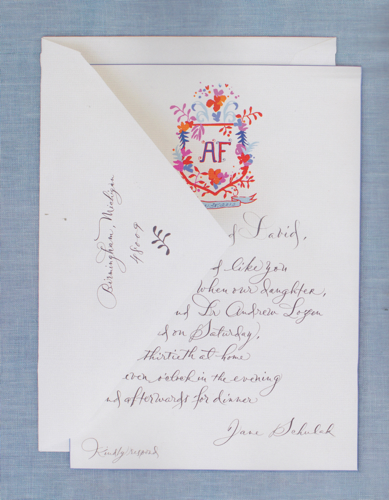 AF
Birmingham, Michigan
48009
David,
like you
when our daughter,
Andrew Logan
on Saturday,
thirtieth at home
o'clock in the evening
and afterwards for dinner
Jane Schulak
Kindly respond